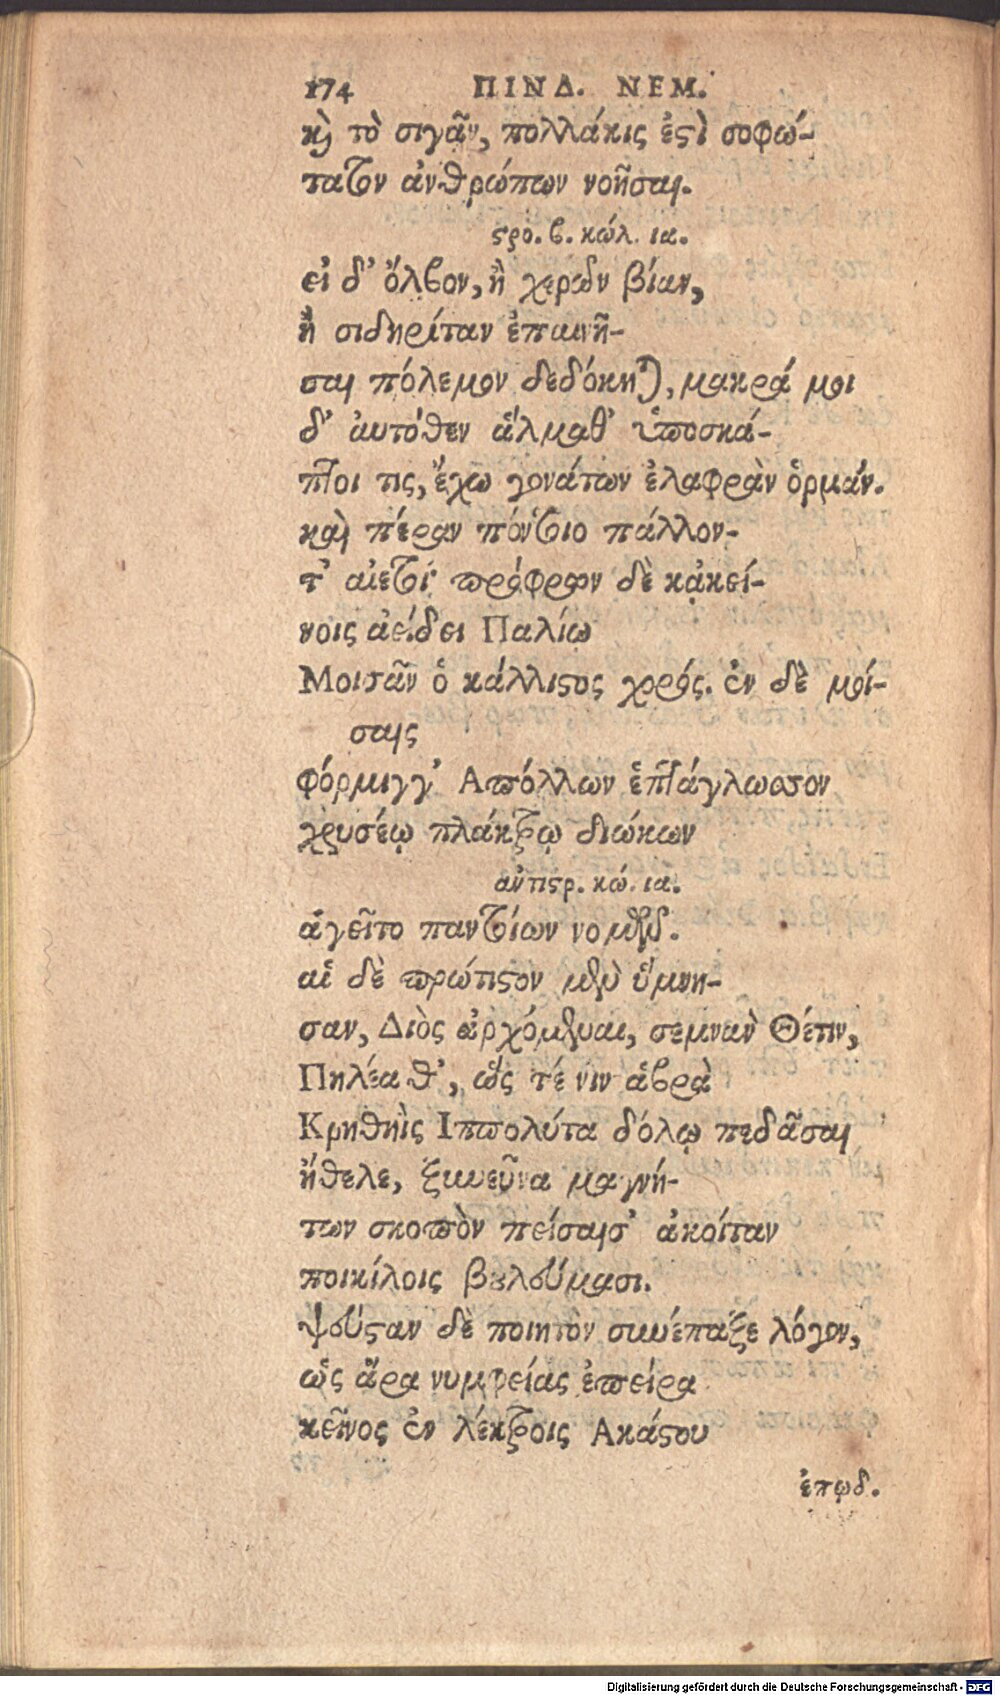 174 ΠΙΝΔ. ΝΕΜ.
κὶ τὸ σιγᾶν, πολλάκις ἐστὶ σοφώ-
τατον ἀνθρώπων νοῆσαι.
στρο. β. κώλ. ια.
εἰ δ' ὄλβον, ἢ χερῶν βίαν,
ἢ σιδηρίταν ἐπαινῆ-
σαι πόλεμον δεδόκηται, μακρά μοι
δ' ἀυτόθεν ἅλμαθ' ὑποσκά-
πτοι τις, ἔχω γονάτων ἐλαφρὰν ὁρμάν.
καὶ πέραν πόντοιο πάλλον-
τ' αἰετοί· πρόφρων δὲ κἀκεί-
νοις ἀείδει Παλίῳ
Μοισᾶν ὁ κάλλιστος χορός. ἐν δὲ μοί-
σαις
φόρμιγγ' Απόλλων ἑπτάγλωσσον
χρυσέῳ πλάκτρῳ διώκων
ἀντιστρ. κώ. ια.
ἁγεῖτο παντοίων νομῶν.
αἱ δὲ πρώτιστον μὲν ὕμνη-
σαν, Διὸς ἀρχόμεναι, σεμνὰν Θέτιν,
Πηλέα θ', ὥς τέ νιν ἁβρὰ
Κρηθηῒς Ιππολύτα δόλῳ πεδᾶσαι
ἤθελε, ξυνεῦνα μαγνή-
των σκοπὸν πείσαισ' ἀκοίταν
ποικίλοις βουλεύμασι.
ψεύσταν δὲ ποιητὸν συνέπαξε λόγον,
ὡς ἄρα νυμφείας ἐπείρα
κεῖνος ἐν λέκτροις Ακάστου
ἐπῳδ.
Digitalisierung gefördert durch die Deutsche Forschungsgemeinschaft - DFG